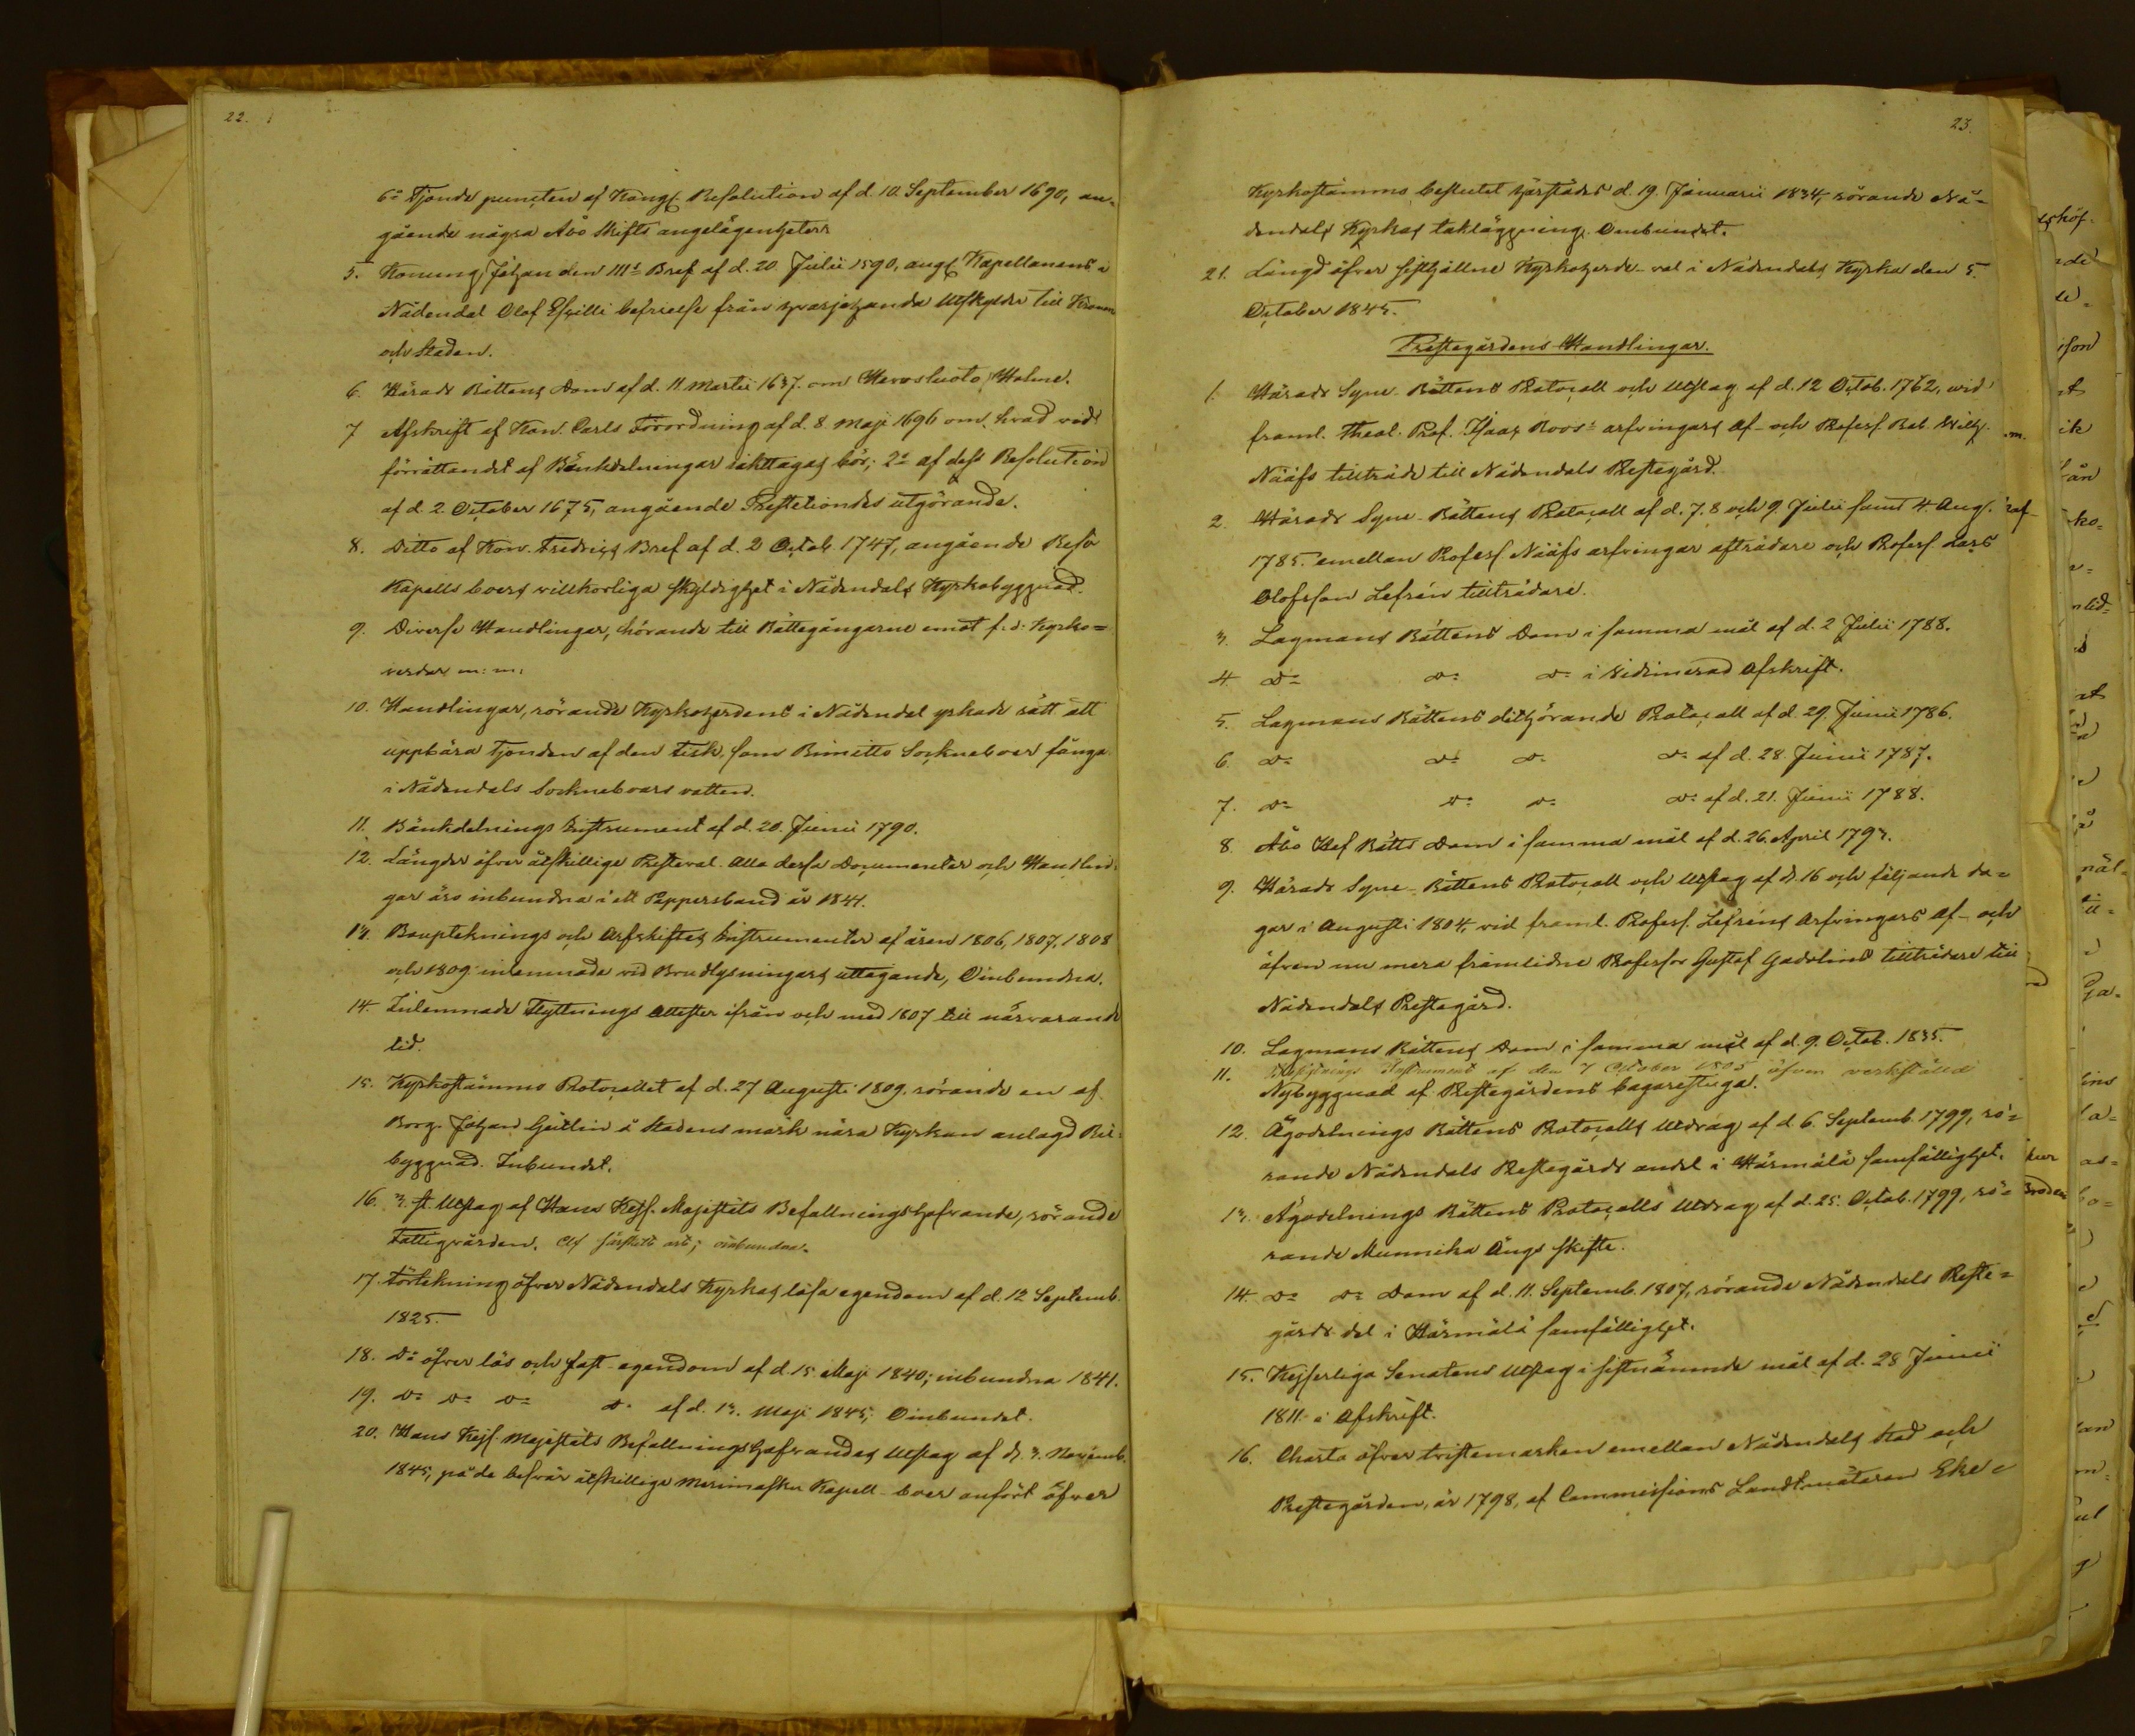 22.
6º Tjonde puncten af Kongl. Resolution af d. 10. September 1690, an-
gående några Åbo Stifts angelägenheter
5. Konung Johan den IIIs Bref af d. 20 Julii 1590, angl. Kapellanens i
Nådendal Olof Eskilli befrielse från hvarjehanda Utskylder till Kronan
och Staden.
6. Härads Rättens Dom af d. 11. Martii 1637. om Haroluoto Holme.
7 Afskrift af Kon. Carls Förordning af d. 8. Maji 1696 om, hvad vid
förrättandet af Bänkdelningar iakttagas bör; 2º af dess Resolution
af d. 2. October 1675, angående Prestetiondes utgörande.
8. Ditto af Kon. Fredrics Bref af d. 2 Octob. 1747, angående Reso
Kapells boers villkorliga skyldighet i Nådendals Kyrkobyggnad.
9. Diverse Handlingar, hörande till Rättegångarne emot f. d. Kyrko-
verdar m: m:
10. Handlingar, rörande Kyrkoherdens i Nådendal yrkade rätt att
uppbära tjonden af den fisk, som Rimitto Sockneboer fånga
i Nådendals Sockneboars vatten.
11. Bänkdelnings Instrument af d. 20. Junii 1790.
12. Längder öfver åtskillige Presteval. Alla dessa Documenter och Handlin-
gar äro inbundna i ett Pappersband år 1841.
13. Bouptecknings och Arfskiftes Instrumenter af åren 1806, 1807, 1808
och 1809. inlemnade vid Brudlysningars uttagande, Oinbundna.
14. Inlemnade Flyttnings Attester ifrån och med 1807 till närvarande
tid.
15. Kyrkostämmo Protocollet af d. 27 Augusti 1809. rörande en af
Borg. Johan Geitlin å Stadens mark nära Kyrkan anlagd
byggnad. Inbundet.
16. 3. st. Utslag af Hans Kejs. Majestäts Befallningshafvande, rörande
Fattigvården. oinbundna.
17. Förtekning öfver Nådendals Kyrkas lösa egendom af d. 12 Septemb.
1825.
18. Dº öfver lös och fast egendom af d. 15. Maji 1840; inbundna 1841.
19. Dº Dº Dº Dº af d. 13. Maji 1845; Oinbundet.
20. Hans Kejs. Majestäts Befallningshafvandes Utslag af d. 3. Novemb.
1845, på de besvär åtskillige Merimasku Kapell-boer anfört öfver
23.
Kyrkostämmo beslutet härstädes d. 19. Januarii 1834, rörande Nå-
dendals Kyrkas takläggning. Oinbundet.
21. Längd öfver sisthållne Kyrkoherde-val i Nådendals Kyrka den 5.
October 1845.
Prestegårdens Handlingar.
1. Härads Syne-Rättens Protocoll och Utslag af d. 12 Octob. 1762, vid
framl. Theol. Prof. Isaac Roos's arfvingars af- och Profess. Bab. Wilh.
Nääfs tillträde till Nådendals Prestegård.
2. Härads Syne-Rättens Protocoll af d. 7. 8 och 9. Julii samt 4 Aug.
1785. emellan Profess. Nääfs arfvingar afträdare och Profess. Lars
Olofsson Lefrén tillträdare.
3. Lagmans Rättens Dom i samma mål af d. 2 Julii 1788.
4. Dº Dº Dº i vidimerad Afskrift.
5. Lagmans Rättens dithörande Protocoll af d. 29. Junii 1786.
6. Dº Dº Dº Dº af d. 28. Junii 1787.
7. Dº Dº Dº Dº af d. 21. Junii 1788.
8. Åbo Hof Rätts Dom i samma mål af d. 26. April 1793.
9. Härads Syne-Rättens Protocoll och Utslag af d. 16 och följande da-
gar i Augusti 1804, vid framl. Profess. Lefréns Arfvingars Af- och
äfven nu mera framlidne Professor Gustaf Gadolins tillträdare till
Nådendals Prestegård.
10. Lagmans Rättens Dom i samma mål af d. 9. Octob. 1835.
11. Instrument af den 7 October 1805 öfver verkställd
Nybyggnad af Prestegårdens bagarestuga.
12. Ägodelnings Rättens Protocolls Utdrag af d. 6. Septemb. 1799, rö-
rande Nådendals Prestegårds andel i Härmälä samfällighet.
13. Ägodelnings Rättens Protocolls Utdrag af d. 25. Octob. 1799, rö-
rande Munnika Ängs skifte.
14. Dº Dº Dom af d. 11. Septemb. 1807, rörande Nådendals Preste-
gårds del i Härmälä samfällighet.
15. Kejserliga Senatens Utslag i sistnämnde mål af d. 28 Junii
1811. i Afskrift.
16. Charta öfver tvistemarken emellan Nådendals stad och
Prestegården, år 1798, af Commissions Landtmätaren Eke-